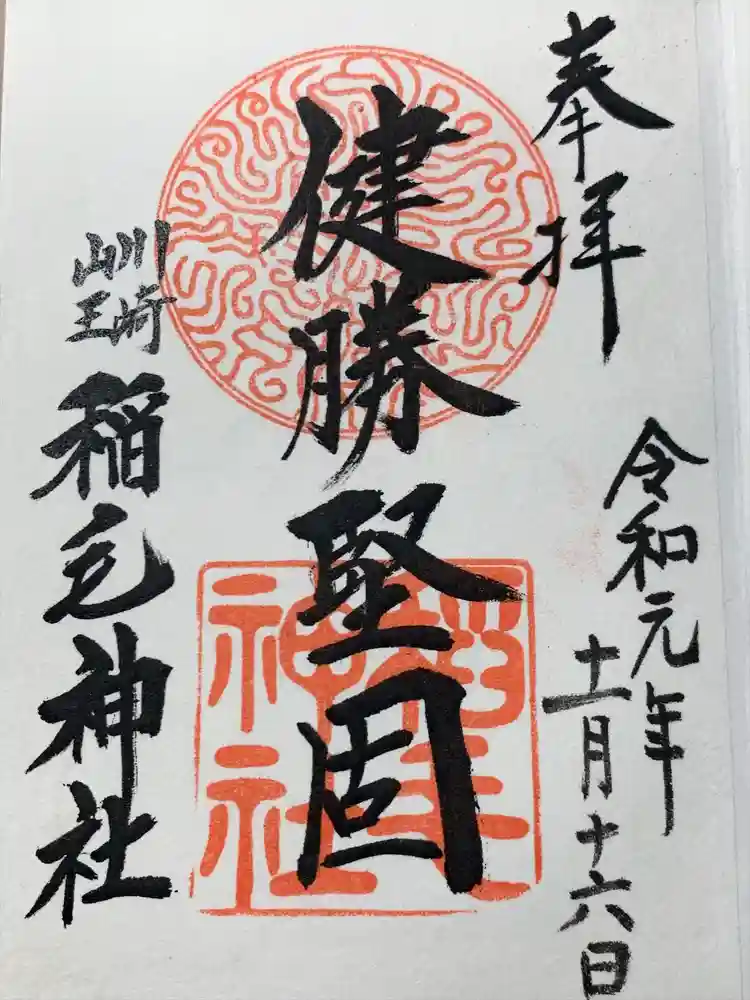 奉拝
令和元年
十一月十六日
健勝堅固
川崎
山王
稲毛神社
稲毛神社